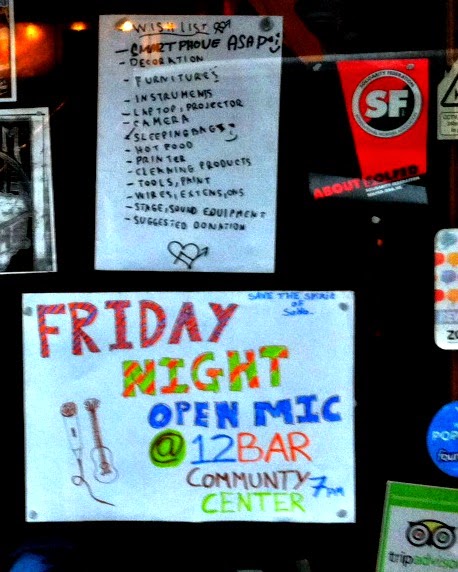 WISH LIST
- SMARTPHONE ASAP :)
- DECORATION
- FURNITURES
- INSTRUMENTS
- LAPTOP, PROJECTOR
- CAMERA
- SLEEPINGBAGS :)
- HOT FOOD
- PRINTER
- CLEANING PRODUCTS
- TOOLS, PAINT
- WIRES, EXTENSIONS
- STAGE, SOUND EQUIPMENT
- SUGGESTED DONATION
SOLIDARITY FEDERATION
SF
ABOUT
SAVE THE SPIRIT
OF
SOHO.
FRIDAY
NIGHT
OPEN MIC
@ 12BAR
COMMUNTY
CENTER
7PM
POP
tripadvisor